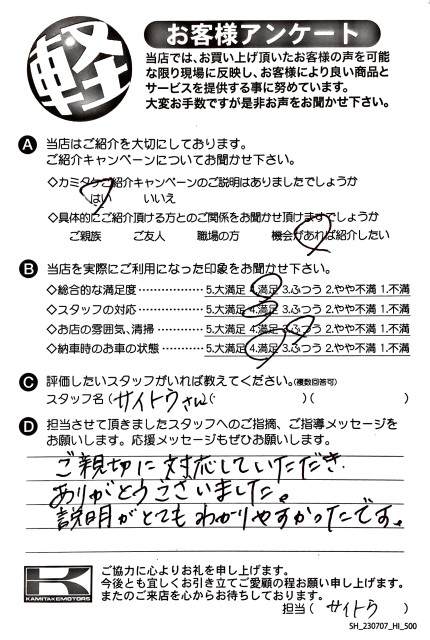 軽
お客様アンケート
当店では、お買い上げ頂いたお客様の声を可能
な限り現場に反映し、お客様により良い商品と
サービスを提供する事に努めています。
大変お手数ですが是非お声をお聞かせ下さい。
A 当店はご紹介を大切にしております。
ご紹介キャンペーンについてお聞かせ下さい。
◇カミタケご紹介キャンペーンのご説明はありましたでしょうか
はい いいえ
◇具体的にご紹介頂ける方とのご関係をお聞かせ頂けますでしょうか
ご親族 ご友人 職場の方 機会があれば紹介したい
B 当店を実際にご利用になった印象をお聞かせ下さい。
◇総合的な満足度……………5.大満足 4.満足 3.ふつう 2.やや不満 1.不満
◇スタッフの対応……………5.大満足 4.満足 3.ふつう 2.やや不満 1.不満
◇お店の雰囲気、清掃…………5.大満足 4.満足 3.ふつう 2.やや不満 1.不満
◇納車時のお車の状態…………5.大満足 4.満足 3.ふつう 2.やや不満 1.不満
C 評価したいスタッフがいれば教えてください。(複数回答可)
スタッフ名(サイトウさん)( )( )
D 担当させて頂きましたスタッフへのご指摘、ご指導メッセージを
お願いします。応援メッセージもぜひお願いします。
ご親切に対応していただき
ありがとうございました。
説明がとてもわかりやすかったです。
K
KAMITAKEMOTORS
ご協力に心よりお礼を申し上げます。
今後とも宜しくお引き立てご愛顧の程お願い申し上げます。
またのご来店を心からお待ちしております。
担当(サイトウ)
SH_230707_HI_500